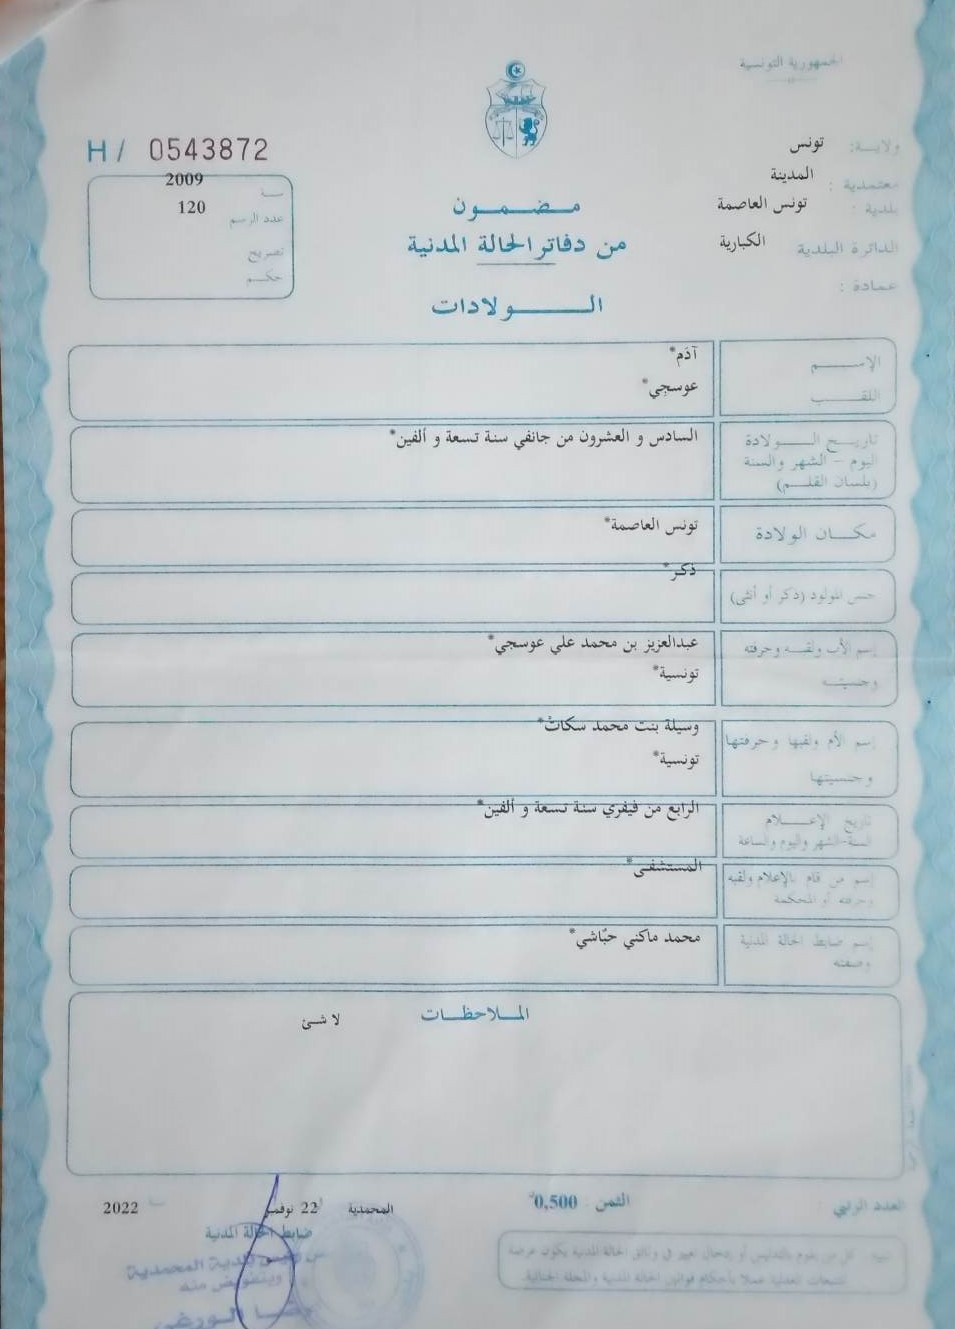 الجمهورية التونسية
ولاية: تونس
معتمدية: المدينة
بلدية: تونس العاصمة
الدائرة البلدية الكبارية
عمادة:
H/ 0543872
سنة 2009
عدد الرسم 120
تصريح
حكم
مضمون
من دفاتر الحالة المدنية
الولادات
الإسم آدم*
اللقب عوسجي*
تاريخ الولادة السادس و العشرون من جانفي سنة تسعة و ألفين*
اليوم - الشهر والسنة
(بلسان القلم)
مكان الولادة تونس العاصمة*
جنس المولود (ذكر أو أنثى) ذكر*
إسم الأب ولقبه وحرفته عبدالعزيز بن محمد علي عوسجي*
وجنسيته تونسية*
إسم الأم ولقبها وحرفتها وسيلة بنت محمد سكات*
وجنسيتها تونسية*
تاريخ الإعلام الرابع من فيفري سنة تسعة و ألفين*
السنة-الشهر واليوم والساعة
إسم من قام بالإعلام ولقبه المستشفى*
وحرفته أو المحكمة
إسم ضابط الحالة المدنية محمد ماكني حبّاشي*
وصفته
الملاحظات
لا شئ
العدد الرتبي
الثمن 0,500
المحمدية 22 نوفمبر 2022
ضابط الحالة المدنية
بلدية المحمدية
وبتفويض منه
الورغي